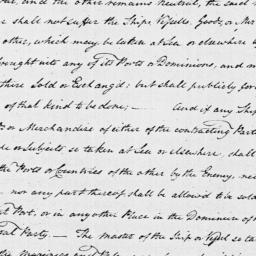 and the other remains Neutral, the said
shall not suffer the Ships Vessels, Goods, or Mer
other, which may be taken at Sea or elsewhere
brought into any of its Ports or Dominions, and m
there Sold or Exchang'd; but shall publicly for
of that kind to be done; — And if any Ship
or Merchandise of either of the contracting Part
or Subjects so taken at Sea or elsewhere, shall
the Ports or Countries of the other by the Enemy, nei
nor any part thereof shall be allowed to be sold
Port, or in any other Place in the Dominion of
Party — The master of the Ship or Vessel so ta
the